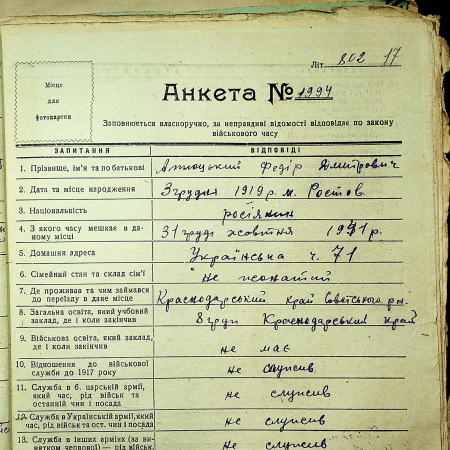 Літ. 802 17
Місце
для
фотокартки
Анкета № 1994
Заповнюється власноручно, за неправдиві відомості відповідає по закону
військового часу
ЗАПИТАННЯ ВІДПОВІДІ
1. Прізвище, ім'я та по батькові Федір Дмитрович
2. Дата та місце народження 3 грудня 1919 р. м. Ростов
3. Національність росіянин
4. З якого часу мешкає в да-
ному місці 31 жовтня 1941 р.
5. Домашня адреса Українська ч. 71
6. Сімейний стан та склад сім'ї не жонатий
7. Де проживав та чим займався
до переїзду в дане місце Краснодарський край
8. Загальна освіта, який учбовий
заклад, де і коли закінчив 8 груп Краснодарський край
9. Військова освіта, який заклад,
де і коли закінчив не має
10. Відношення до військової
служби до 1917 року не служив
11. Служба в б. царській армії,
який час, рід військ та
останній чин і посада не служив
12. Служба в Українській армії, який
час, рід військ та ост. чин і посада не служив
13. Служба в інших арміях (за ви-
нятком червоної) — рід військ, не служив